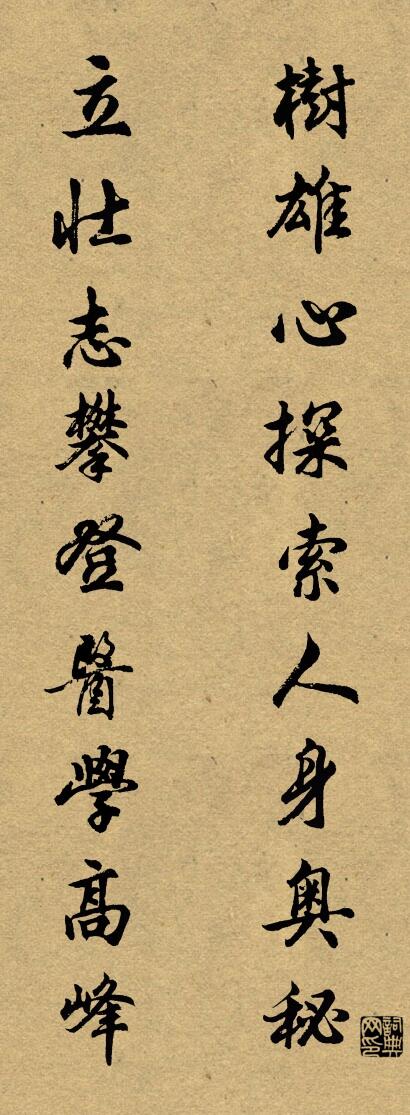 樹雄心探索人身奥秘
立壮志攀登醫學髙峰
詞典网印